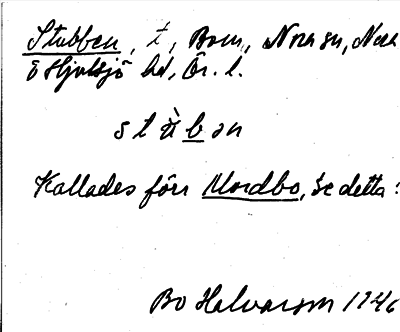 Stubben, t, Bom, Nora sn, Nora
o Hjulsjö hd, Ör. l.
stùbən
Kallades förr Nordbo, se detta:
Bo Halvarson 1946